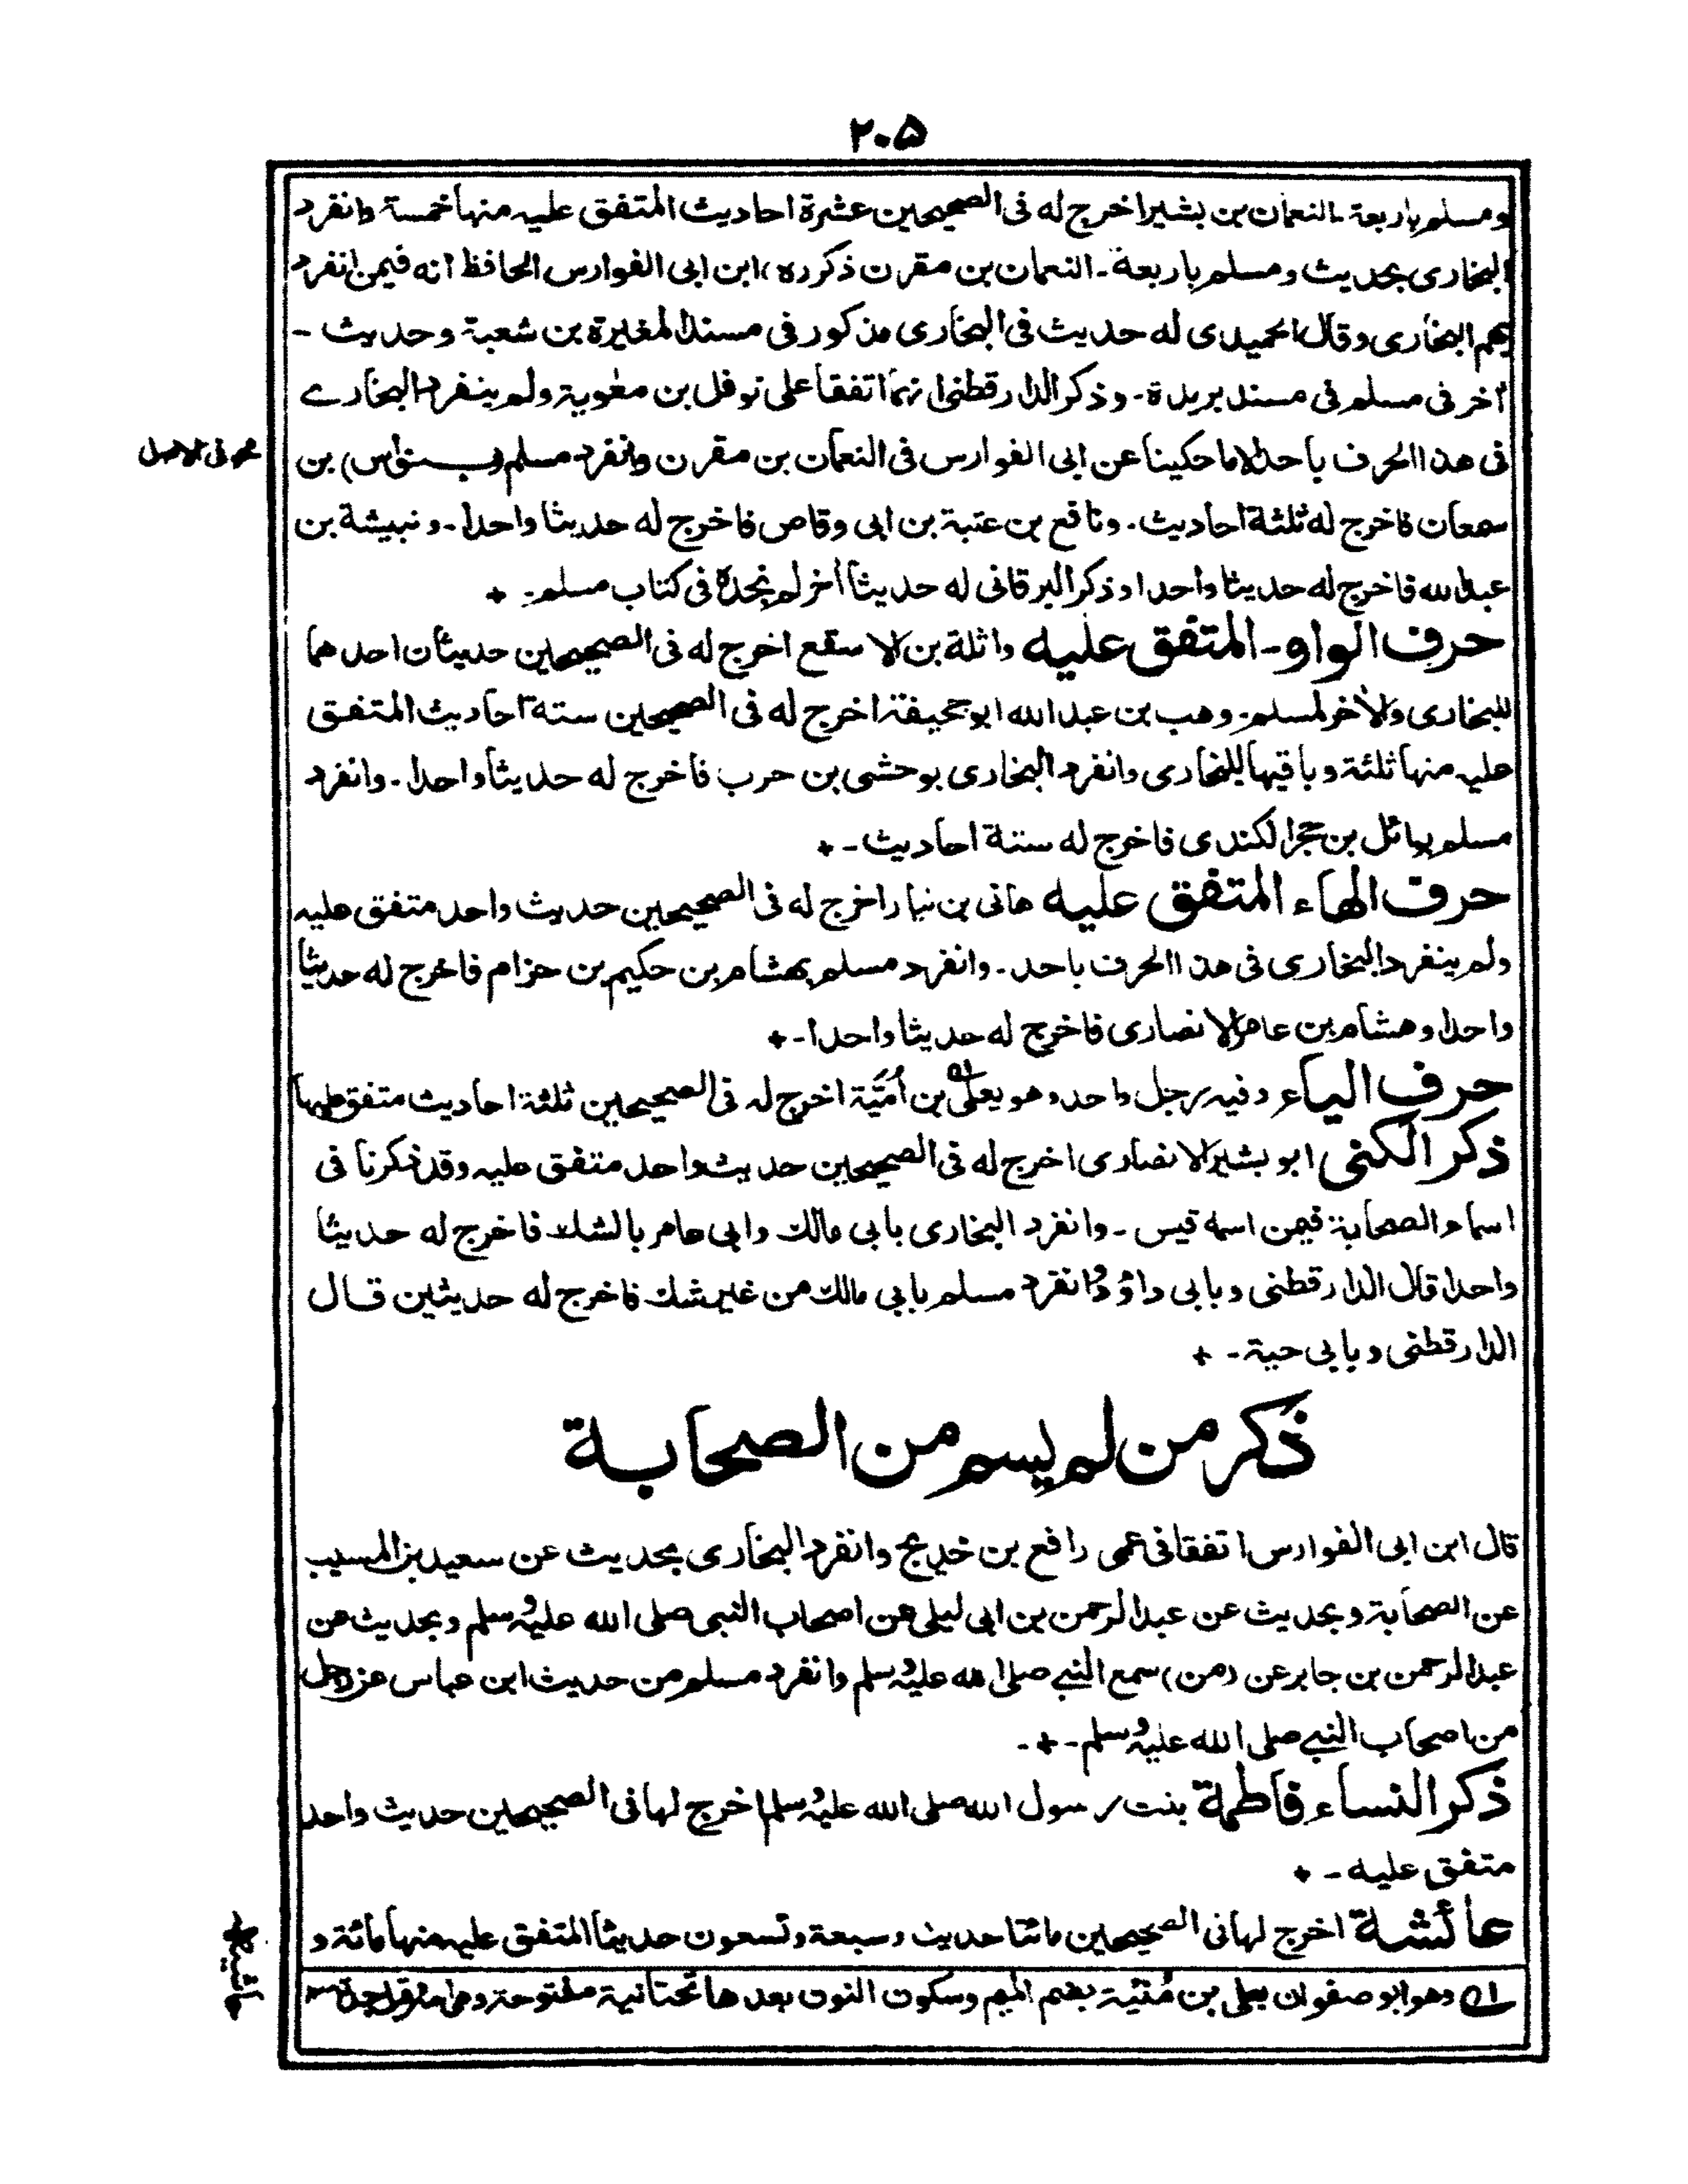 ۲۰۵
ومسلم باربعة ـ النعمان بن بشير اخرج له فى الصحيحين عشرة احاديث المتفق عليه منها خمسة وانفرد
البخارى بحديث ومسلم باربعة ـ النعمان بن مقرن ذكره ابن ابى الفوارس الحافظ انه فيمن انفرد
بهم البخارى وقال الحميدى له حديث فى البخارى مذكور فى مسند المغيرة بن شعبة وحديث ـ
اٰخر فى مسلم فى مسند بريدة ـ وذكر الدارقطنى انهما اتفقا على نوفل بن معٰوية ولم ينفرد البخارے
فى هذا الحرف باحد الا ما حكينا عن ابى الفوارس فى النعمان بن مقرن وانفرد مسلم (بـنواس) بن
محو فى الاصل
سمعان فاخرج له ثلثة احاديث ـ ونافع بن عتبة بن ابى وقاص فاخرج له حديثا واحدا ـ ونبيشة بن
عبد الله فاخرج له حديثا واحدا وذكر البرقانى له حديثا اٰخر لم نجدهٗ فى كتاب مسلم ـ +
حرف الواو ـ المتفق عليه واثلة بن الاسقع اخرج له فى الصحيحين حديثان احدهما
للبخارى والاٰخر لمسلم ـ وهب بن عبد الله ابو جحيفة اخرج له فى الصحيحين ستة احاديث المتفق
عليه منها ثلثة وباقيها للبخارى وانفرد البخارى بوحشى بن حرب فاخرج له حديثا واحدا ـ وانفرد
مسلم بوائل بن حجر الكندى فاخرج له ستة احاديث ـ +
حرف الهاء المتفق عليه هانى بن نيار اخرج له فى الصحيحين حديث واحد متفق عليه
ولم ينفرد البخارى فى هذا الحرف باحد ـ وانفرد مسلم بهشام بن حكيم بن حزام فاخرج له حديثا
واحدا وهشام بن عامر الانصارى فاخرج له حديثا واحدا ـ +
حرف الياء وفيه رجل واحد وهو يعلى ؁۱ بن اُمَيَّة اخرج له فى الصحيحين ثلثة احاديث متفق عليها
ذكر الكنى ابو بشير الانصارى اخرج له فى الصحيحين حديث واحد متفق عليه وقد ذكرنا فى
اسماء الصحابة فيمن اسمه قيس ـ وانفرد البخارى بابى مالك وابى عامر بالشك فاخرج له حديثا
واحدا قال الدارقطنى وبابى داؤد وانفرد مسلم بابى مالك من غير شك فاخرج له حديثين قال
الدارقطنى وبابى حبة ـ +
ذكر من لم يسم من الصحابة
قال ابن ابى الفوارس اتفقا فى عمى رافع بن خديج وانفرد البخارى بحديث عن سعيد بن المسيب
عن الصحابة وبحديث عن عبد الرحمن بن ابى ليلى عن اصحاب النبى صلى الله عليه وسلم وبحديث عن
عبد الرحمن بن جابر عن (من) سمع النبے صلى الله عليه وسلم وانفرد مسلم من حديث ابن عباس عن رجل
من اصحاب النبے صلى الله عليه وسلم ـ + ـ
ذكر النساء فاطمة بنت رسول الله صلى الله عليه وسلم اخرج لها فى الصحيحين حديث واحد
متفق عليه ـ +
عائشة اخرج لها فى الصحيحين مائتا حديث وسبعة وتسعون حديثا المتفق عليه منها مائة و
؁۱ وهو ابو صفوان يعلى بن مُنْيَة بضم الميم وسكون النون بعدها تحتانية مفتوحة وهى امه